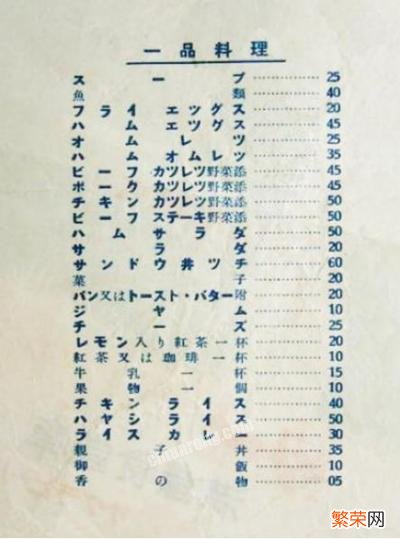 一品料理
スープ 25
魚類 40
フライエツグス 20
ハムエツグス 45
オムレツ 25
ハムオムレツ 35
ビーフカツレツ野菜添 45
ポークカツレツ野菜添 45
チキンカツレツ野菜添 50
ビーフステーキ野菜添 50
ハムサラダ 50
サラダ 20
サンドウ井ツチ 60
菓子 20
パン又はトースト・バター附 20
ジヤム 10
チーズ 25
レモン入り紅茶一杯 20
紅茶又は珈琲一杯 10
牛乳一杯 15
果物一個 10
チキンライス 40
ハヤシライス 50
ライスカレー 30
親子丼 35
御飯 10
香の物 05
繁荣网